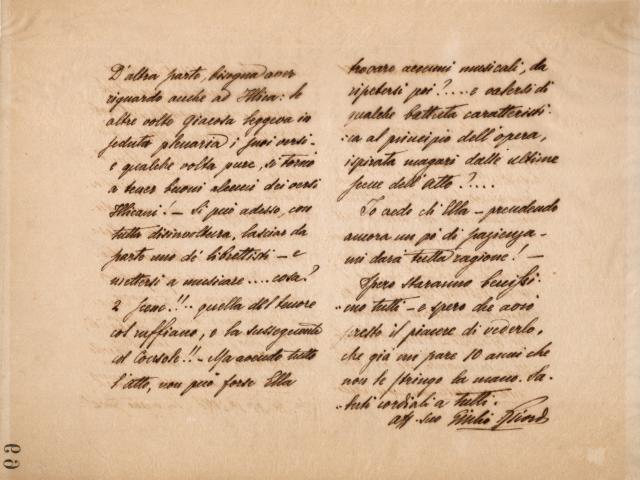 D'altra parte, bisogna aver
riguardo anche ad Illica: le
altre volte Giacosa leggeva in
seduta plenaria i suoi versi -
e qualche volta pure, si tornò
a tener buoni alcuni dei versi
Illicani! - Si può adesso, con
tutta disinvoltura, lasciar da
parte uno de' librettisti - e
mettersi a musicare .... cosa?
2 scene!!.. quella del tenore
col ruffiano, e la susseguente
col Console!! - Ma avendo tutto
l'atto, non può forse Ella
trovare accenni musicali, da
ripetersi poi?.... e valersi di
qualche battuta caratteristi-
ca al principio dell'opera,
ispirata magari dalle ultime
scene dell'atto?....
Io credo che Ella - prendendo
ancora un pò di pazienza -
mi darà tutta ragione! -
Spero staranno benissi-
mo tutti - e spero che avrò
presto il piacere di vederlo,
che già mi pare 10 anni che
non le stringo la mano. Sa-
luti cordiali a tutti.
aff. suo Giulio Ricordi
69